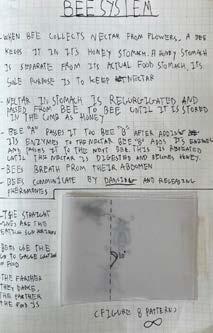 BEE SYSTEM
- WHEN BEE COLLECTS NECTAR FROM FLOWERS. A BEE
KEEPS IT IN ITS HONEY STOMACH. A HONEY STOMACH
IS SEPARATE FROM ITS ACTUAL FOOD STOMACH. ITS
SOLE PURPOSE IS TO KEEP NECTAR
- NECTAR IN STOMACH IS REGURGITATED AND
PASSED FROM BEE TO BEE UNTIL IT IS STORED
IN THE COMB AS HONEY
- BEE "A" PASSES IT TOO BEE "B" AFTER ADDING
ITS ENZYMES TO THE NECTAR BEE "B" ADDS ITS
AND PASSES IT TO THE NEXT BEE. THIS IS REPEATED
UNTIL THE NECTAR IS DIGESTED AND BECOMES HONEY.
- BEES BREATH FROM THEIR ABDOMEN
- BEES COMMUNICATE BY DANCING AND RELEASING
PHEROMONES
THE STRAIGHT
ARE TWO
BEES USE THE
TO GAUGE
OF FOOD
THE FARTHER
THEY DANCE,
THE FARTHER
THE FOOD IS
(FIGURE 8 PATTERN)